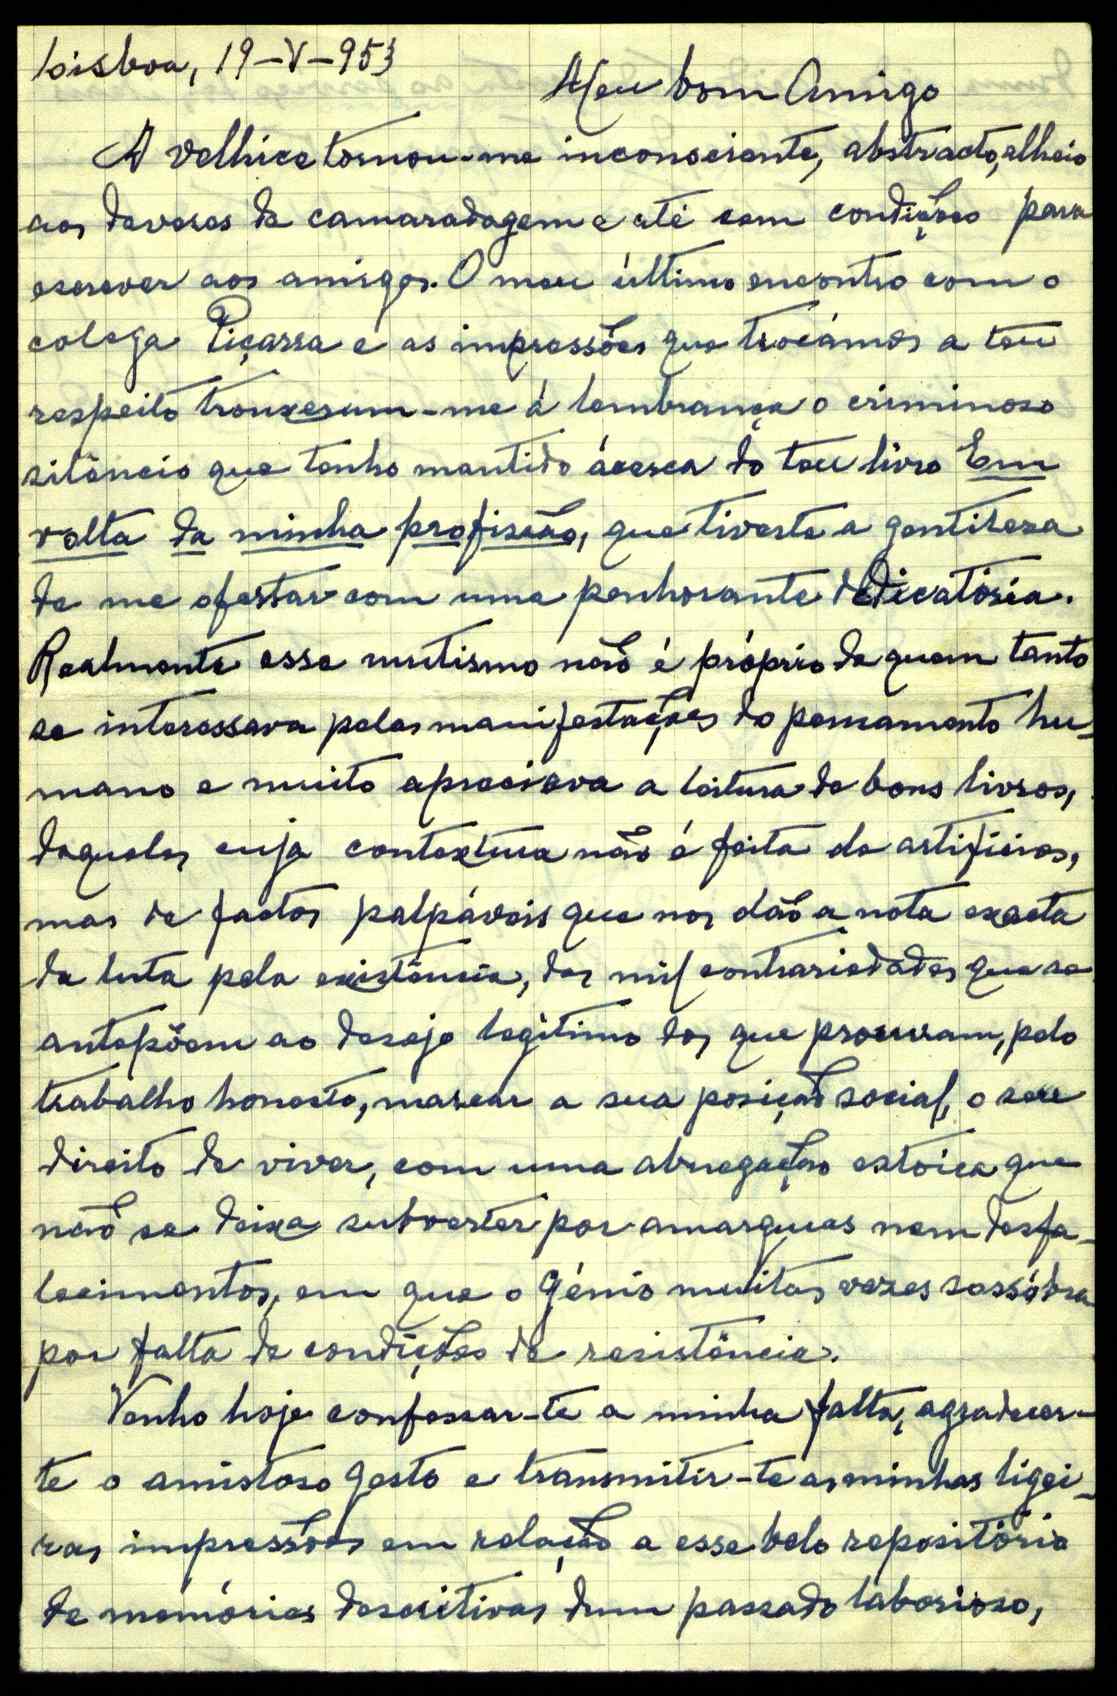 Lisboa, 19-V-953
Meu bom Amigo
A velhice tornou-me inconsciente, abstracto, alheio
aos deveres de camaradagem e até sem condições para
escrever aos amigos. O meu último encontro com o
colega Piçarra e as impressões que trocámos a teu
respeito trouxeram-me á lembrança o criminoso
silêncio que tenho mantido ácerca do teu livro Em
volta da minha profissão, que tiveste a gentileza
de me ofertar com uma penhorante dedicatória.
Realmente esse mutismo não é próprio de quem tanto
se interessava pelas manifestações do pensamento hu-
mano e muito apreciava a leitura de bons livros,
daqueles cuja contextura não é feita de artifícios,
mas de factos palpáveis que nos dão a nota exacta
da luta pela existência, das mil contrariedades que se
antepõem ao desejo legítimo dos que procuram, pelo
trabalho honesto, marcar a sua posição social, o seu
direito de viver, com uma abnegação estóica que
não se deixa subverter por amarguras nem desfa-
lecimentos, em que o Génio muitas vezes sossóbra
por falta de condições de resistência.
Venho hoje confessar-te a minha falta, agradecer-
te o amistoso gesto e transmitir-te as minhas ligei-
ras impressões em relação a esse belo repositório
de memórias descritivas dum passado laborioso,